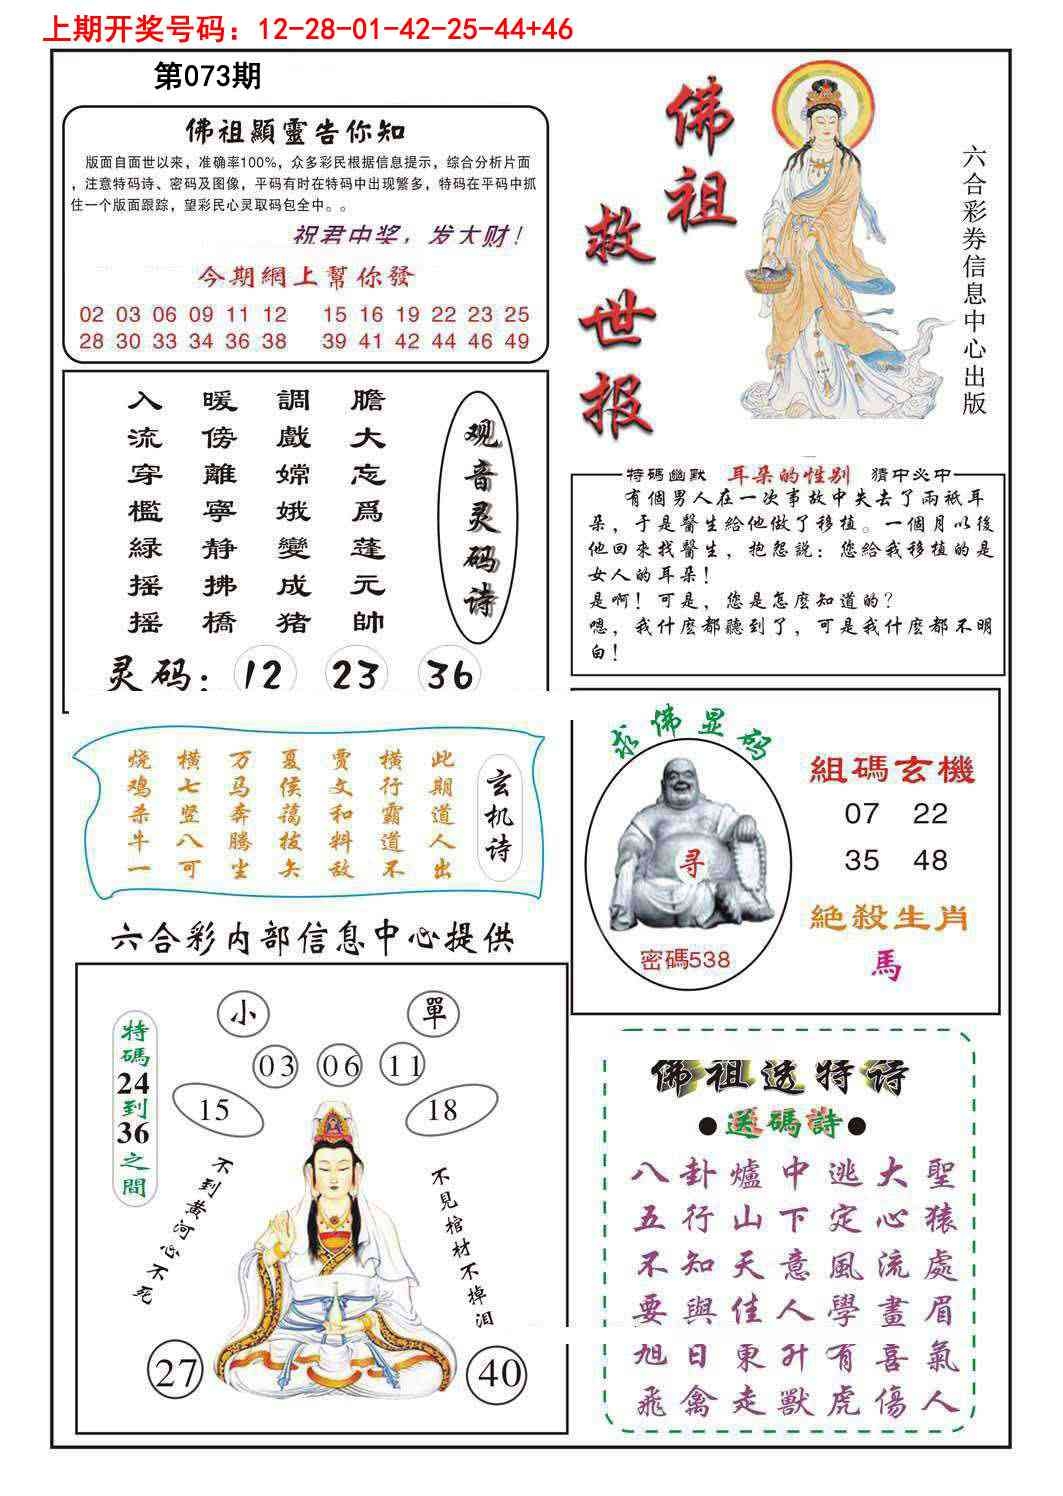 上期开奖号码：12-28-01-42-25-44+46
第073期
佛祖顯靈告你知
版面自面世以来，准确率100%，众多彩民根据信息提示，综合分析片面
，注意特码诗、密码及图像，平码有时在特码中出现繁多，特码在平码中抓
住一个版面跟踪，望彩民心灵取码包全中。。
祝君中奖，发大财！
今期網上幫你發
02 03 06 09 11 12 15 16 19 22 23 25
28 30 33 34 36 38 39 41 42 44 46 49
佛祖
救世报
六合彩券信息中心出版
观音灵码诗
膽大忘爲蓬元帥
調戲嫦娥變成猪
暖傍離寧静拂橋
入流穿檻緑摇摇
灵码：12 23 36
特碼幽默 耳朵的性别 猜中必中
有個男人在一次事故中失去了兩祇耳
朵，于是醫生給他做了移植。一個月以後
他回來找醫生，抱怨説：您給我移植的是
女人的耳朵！
是啊！可是，您是怎麽知道的？
嗯，我什麽都聽到了，可是我什麽都不明
白！
玄机诗
此期道人出
横行霸道不
贾文和料敌
夏侯蔼拔矢
万马奔腾尘
横七竖八可
烧鸡杀牛一
六合彩内部信息中心提供
求佛显码
寻
密碼538
組碼玄機
07 22
35 48
絶殺生肖
馬
小 單
03 06 11
15 18
特碼24到36之間
不到黄河心不死
不見棺材不掉泪
27 40
佛祖透特诗
●送碼詩●
八卦爐中逃大聖
五行山下定心猿
不知天意風流處
要與佳人學畫眉
旭日東升有喜氣
飛禽走獸虎傷人